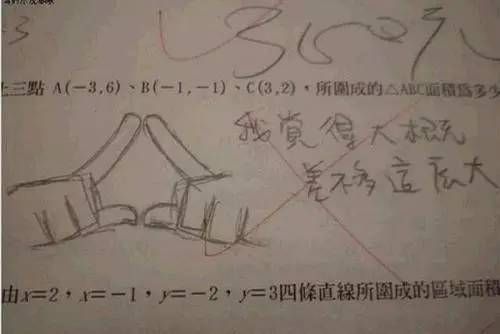 -3
上三點 A(-3,6)、B(-1,-1)、C(3,2),所圍成的△ABC面積為多少
我覺得大概
差不多這麼大
由x=2,x=-1,y=-2,y=3四條直線所圍成的區域面積